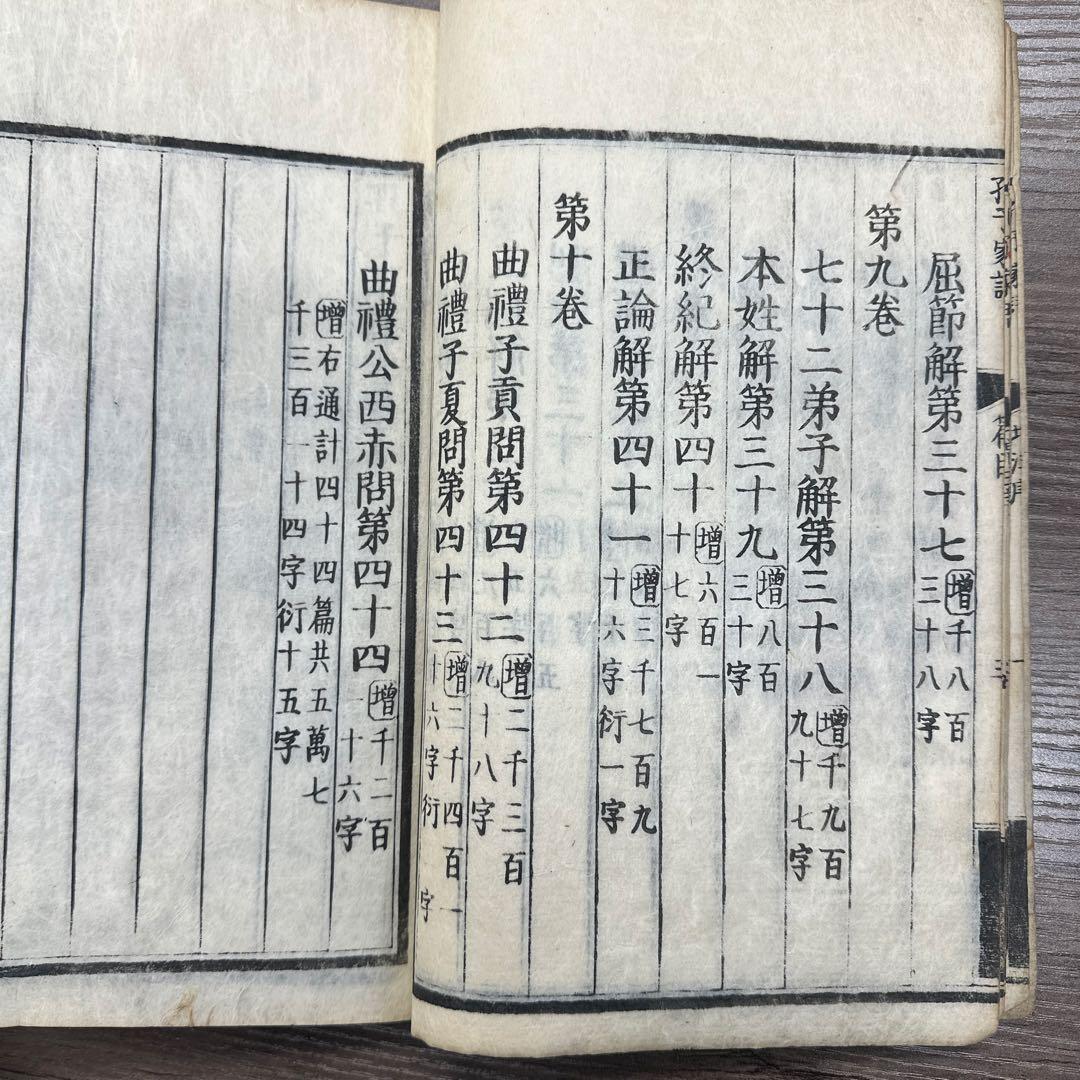 屈節解第三十七 增千八百三十八字
第九卷
七十二弟子解第三十八 增千九百九十七字
本姓解第三十九 增八百三十字
終紀解第四十 增六百一十七字
正論解第四十一 增三千七百九十六字衍一字
第十卷
曲禮子貢問第四十二 增二千三百九十八字
曲禮子夏問第四十三 增二千四百一十六字衍一字
曲禮公西赤問第四十四 增千二百一十六字
增右通計四十四篇共五萬七
千三百一十四字衍十五字
篇目